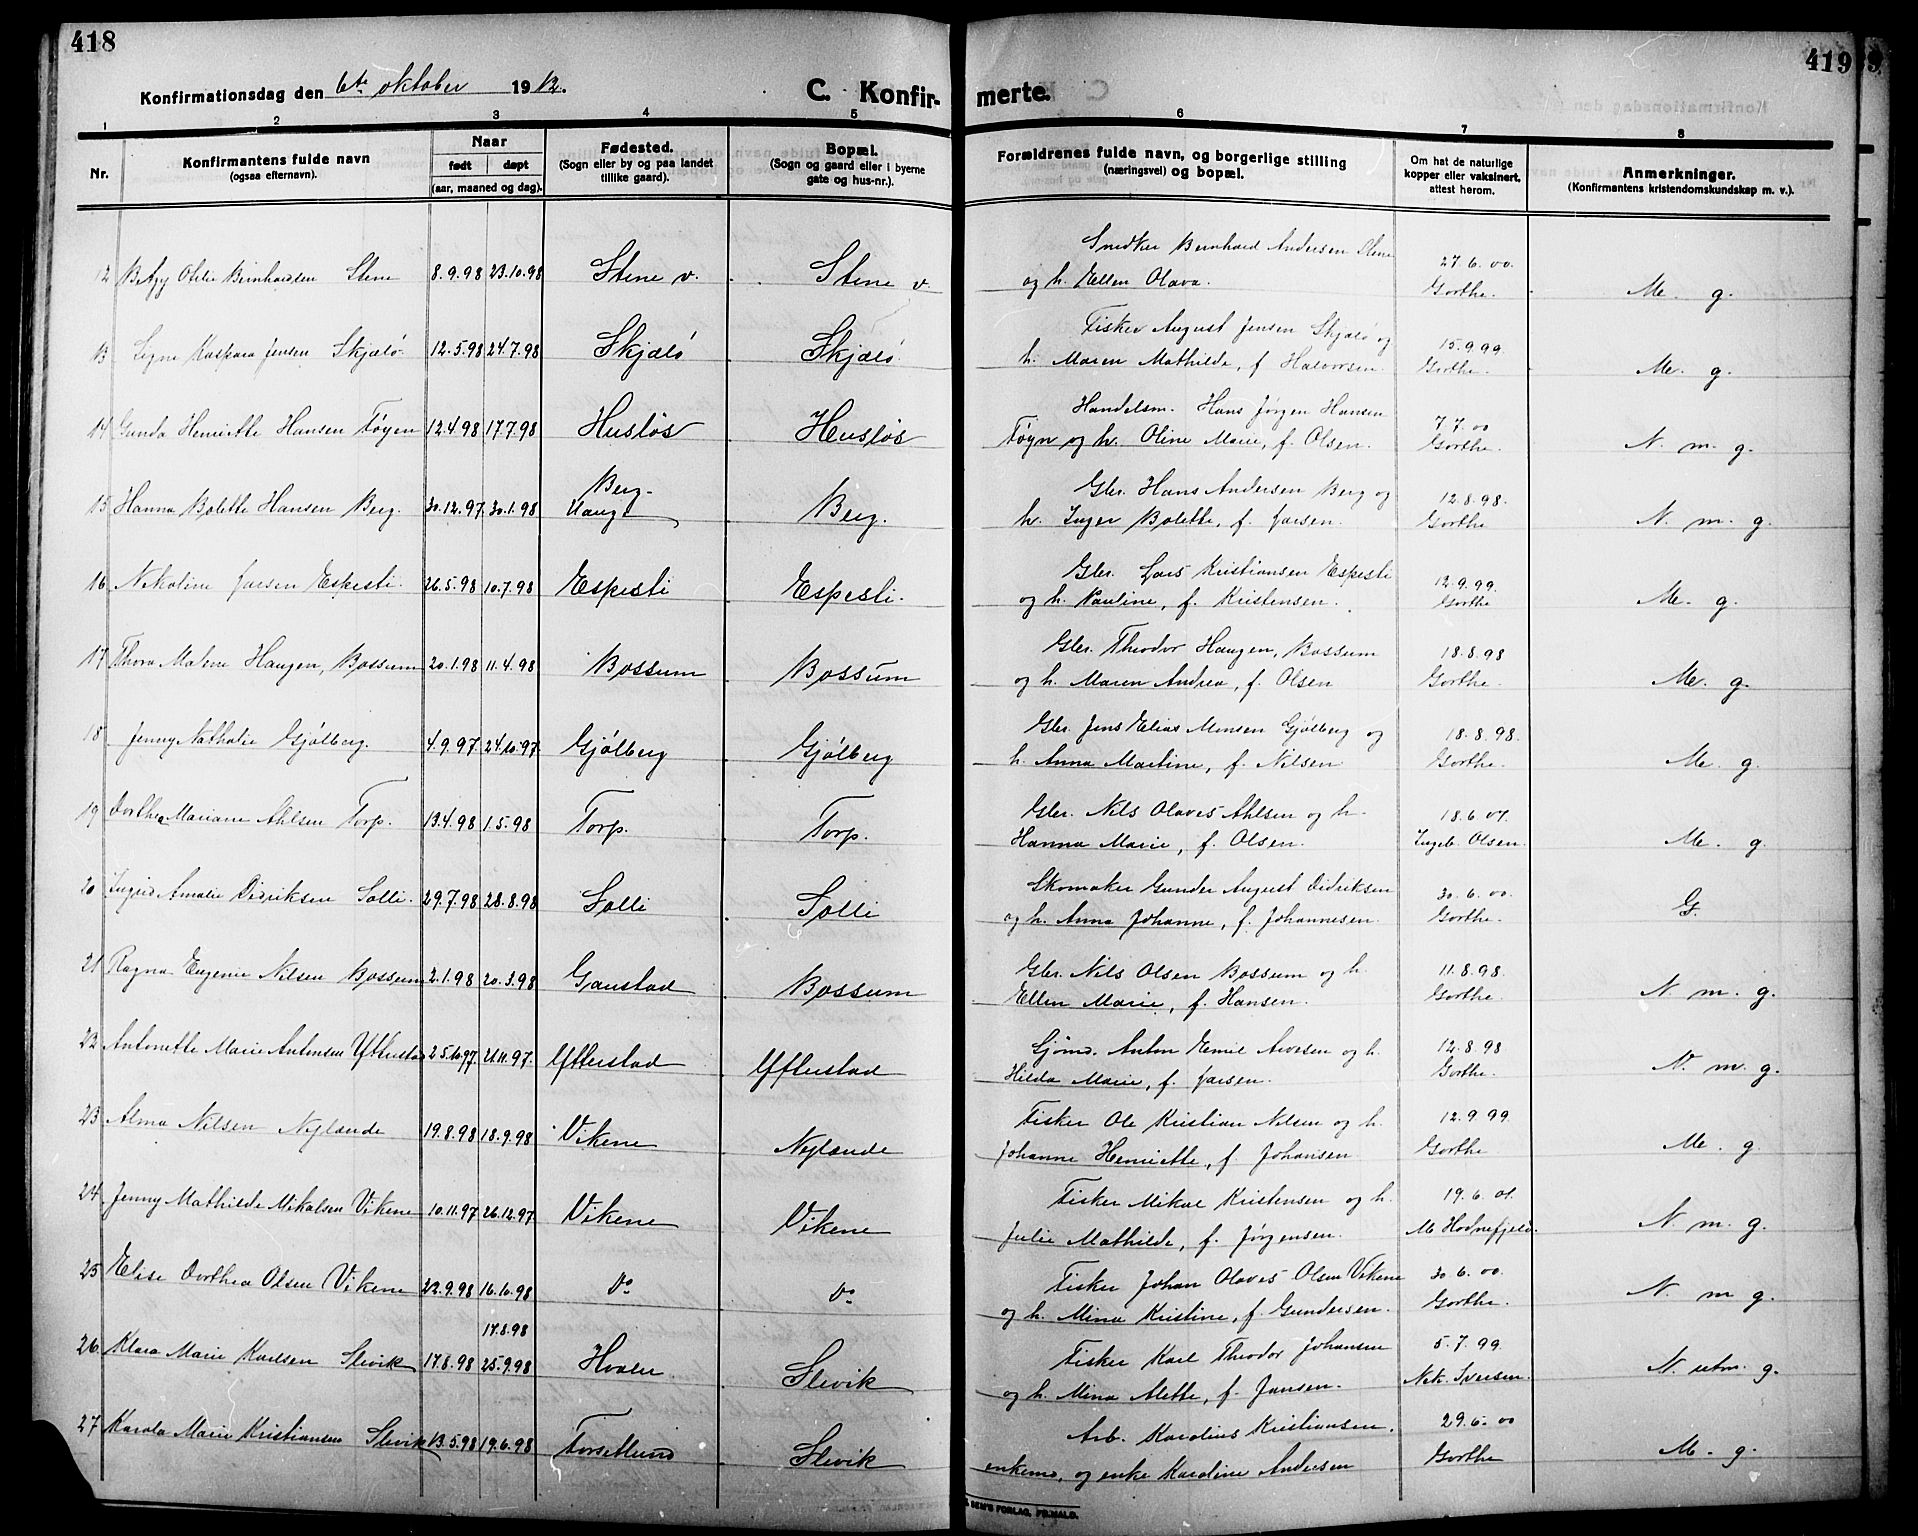 418
419
Konfirmationsdag den 6te oktober 1912.
C. Konfirmerte.
1 2 3 4 5 6 7 8
Nr.
Konfirmantens fulde navn
(ogsaa efternavn).
Naar
født døpt
(aar, maaned og dag).
Fødested.
(Sogn eller by og paa landet
tillike gaard).
Bopæl.
(Sogn og gaard eller i byerne
gate og hus-nr.).
Forældrenes fulde navn, og borgerlige stilling
(næringsvei) og bopæl.
Om hat de naturlige
kopper eller vaksinert,
attest herom.
Anmerkninger.
(Konfirmantens kristendomskundskap m. v.).
12 Betzy Otilie Bernhardsen Stene 8.9.98 23.10.98 Stene v. Stene v. Snedker Bernhard Andersen Stene 27.6.00.
og h. Ellen Olava. Gorthe. Me. g.
13 Signe Kaspara Jensen Skjælø 12.5.98 24.7.98 Skjælø Skjælø. Fisker August Jensen Skjælø og 15.9.99.
h. Maren Mathilde, f. Halvorsen. Gorthe. Me. g.
14 Gunda Henriette Hansen Tøyen 12.4.98 17.7.98 Husløs Husløs Handelsm. Hans Jørgen Hansen 7.7.00
Tøyn og h. Oline Marie, f. Olsen. Gorthe. N. m. g.
15 Hanna Bolette Hansen Berg. 30.12.97 30.1.98 Berg. Berg. Gbr. Hans Andersen Berg og 12.8.98.
Haugt h. Inger Bolette, f. Larsen. Gorthe N. m. g.
16 Nikoline Larsen Espesti. 26.5.98 10.7.98 Espesti Espesti. Gbr. Lars Kristiansen Espesti 12.9.99.
og h. Pauline, f. Kristensen. Gorthe Me. g.
17 Thora Malene Haugen, Bossum 20.1.98 11.4.98 Bossum Bossum Gbr. Theodor Haugen, Bossum 18.8.98
og h. Maren Andrea, f. Olsen Gorthe. Me. g.
18 Jenny Nathalie Gjølberg. 4.9.97 24.10.97 Gjølberg Gjølberg Gbr. Jens Elias Monsen Gjølberg og 18.8.98.
h. Anna Martine, f. Nilsen Gorthe. Me. g.
19 Dorthea Mariane Ahlsen Torp. 13.4.98 1.5.98 Torp. Torp. Gbr. Nils Olaves Ahlsen og h. 18.6.01.
Hanna Marie, f. Olsen. Ingeb. Olsen. Me. g.
20 Ingrid Amalie Didriksen Solli. 29.7.98 28.8.98 Solli Solli Skomaker Gunder August Didriksen 30.6.00.
og h. Anna Johanne, f. Johannesen. Gorthe. G.
21 Ragna Eugenie Nilsen Bossum 2.1.98 20.3.98 Gaustad Bossum Gbr. Nils Olsen Bossum og h. 11.8.98.
Ellen Marie, f. Hansen. Gorthe. N. m. g.
22 Antonette Marie Antonsen Ytterstad 25.10.97 21.11.97. Ytterstad Ytterstad Sjømd. Anton Emil Arvesen og h. 12.8.98
Hilda Marie, f. Larsen. Gorthe. N. m. g.
23 Alma Nilsen Nylænde 19.8.98 18.9.98 Vikene Nylænde Fisker Ole Kristian Nilsen og h. 12.9.99
Johanne Henriette, f. Johansen Gorthe Me. g.
24 Jenny Mathilde Mikalsen Vikene 10.11.97 26.12.97 Vikene Vikene Fisker Mikal Kristensen og h. 19.6.01.
Julie Mathilde, f. Jørgensen. M. Hodnefjeld. N. m. g.
25 Elise Dorthea Olsen Vikene 22.9.98 16.10.98 Do Do Fisker Johan Olaves Olsen Vikene 30.6.00.
og h. Mina Kristine, f. Gundersen. Gorthe. N. m. g.
17.8.98
26 Klara Marie Karlsen Slevik 17.8.98 25.9.98 Hvaler Slevik Fisker Karl Theodor Johansen 5.7.99.
og h. Mina Alette, f. Jansen. Nik. Iversen. N. utm. g.
27 Karola Marie Kristiansen Slevik 13.5.98 19.6.98 Torsetlund Slevik Arb. Karolius Kristiansen, 29.6.00
enkemd, og enke Karoline Andersen Gorthe M. g.
SEM'S FORLAG, FR.HALD.